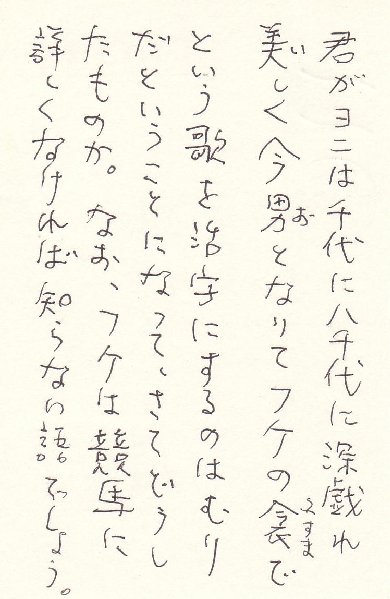 君がヨニは千代に八千代に深戯れ
美しく今男となりてフケの衾で
い お ふすま
という歌を活字にするのはむり
だということになって、さてどうし
たものか。なお、フケは競馬に
詳しくなければ知らない語でしょう。